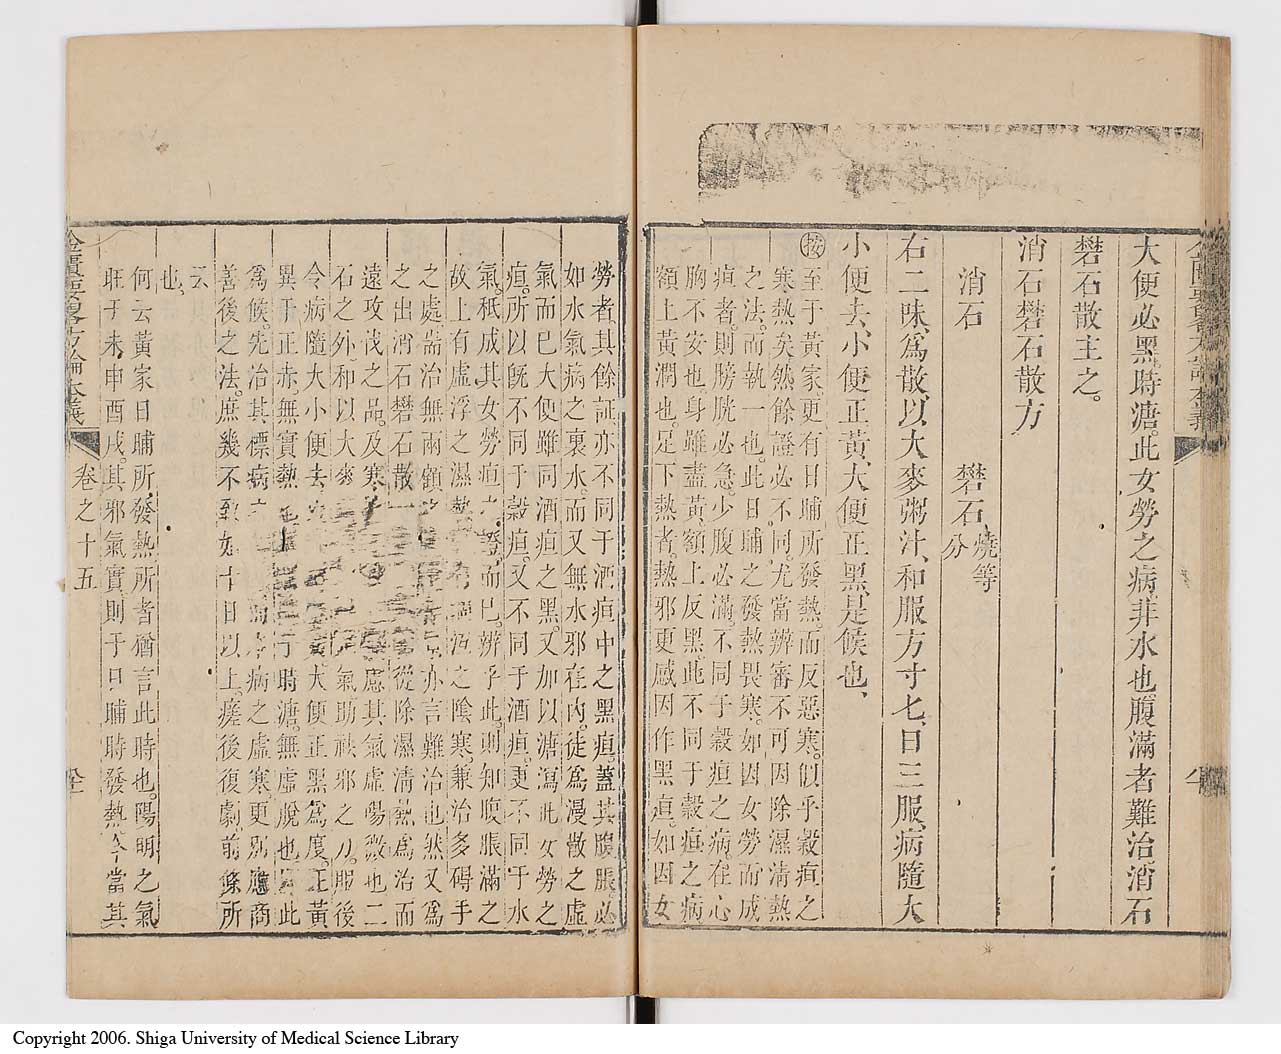 大便必黑。時溏。此女勞之病。非水也。腹滿者難治。消石
礬石散主之。
消石礬石散方
消石　礬石燒等分
右二味、爲散、以大麥粥汁、和服方寸七、日三服、病隨大
小便去、小便正黃、大便正黑、是候也、
按至于黃家。更有日晡所發熱。而反惡寒。似乎穀疸之
寒熱矣。然餘證必不同。尤當辨審。不可因除濕淸熱
之法。而執一也。此日晡之發熱畏寒。如因女勞而成
疸者。則膀胱必急。少腹必滿。不同于穀疸之病。在心
胸不安也。身雖盡黃。額上反黑。此不同于穀疸之病
額上黃潤也。足下熱者。熱邪更感。因作黑疸。如因女
勞者。其餘証。亦不同于酒疸中之黑疸。蓋其腹脹。必
如水氣病之裏水。而又無水邪在內。徒爲漫散之虛
氣而已。大便雖同酒疸之黑。又加以溏瀉。此女勞之
疸。所以旣不同于穀疸。又不同于酒疸。更不同于水
氣。秖成其女勞疸之證而已。辨乎此。則知腹脹滿之
故。上有虛浮之濕熱之陰寒。兼治多碍手
之處。耑治無兩顧之亦言難治也。然又爲
之出消石礬石散一從除濕淸熱爲治。而
遠攻伐之品。及寒慮其氣虛陽微也。二
石之外。和以大麥氣。助祛邪之力。服後
令病隨大小便去。大便正黑爲度。正黃
異于正赤。無實熱也于時溏。無虛脫也。此
爲候。先治其標病病之虛寒。更別應商
善後之法。庶幾不致如十日以上。瘥後復劇。前條所
云
也。
何云黃家日晡所發熱。所者猶言此時也。陽明之氣
旺于未申酉戌。其邪氣實則于日晡時發熱。今當其
金匱要畧方論本義
卷之十五